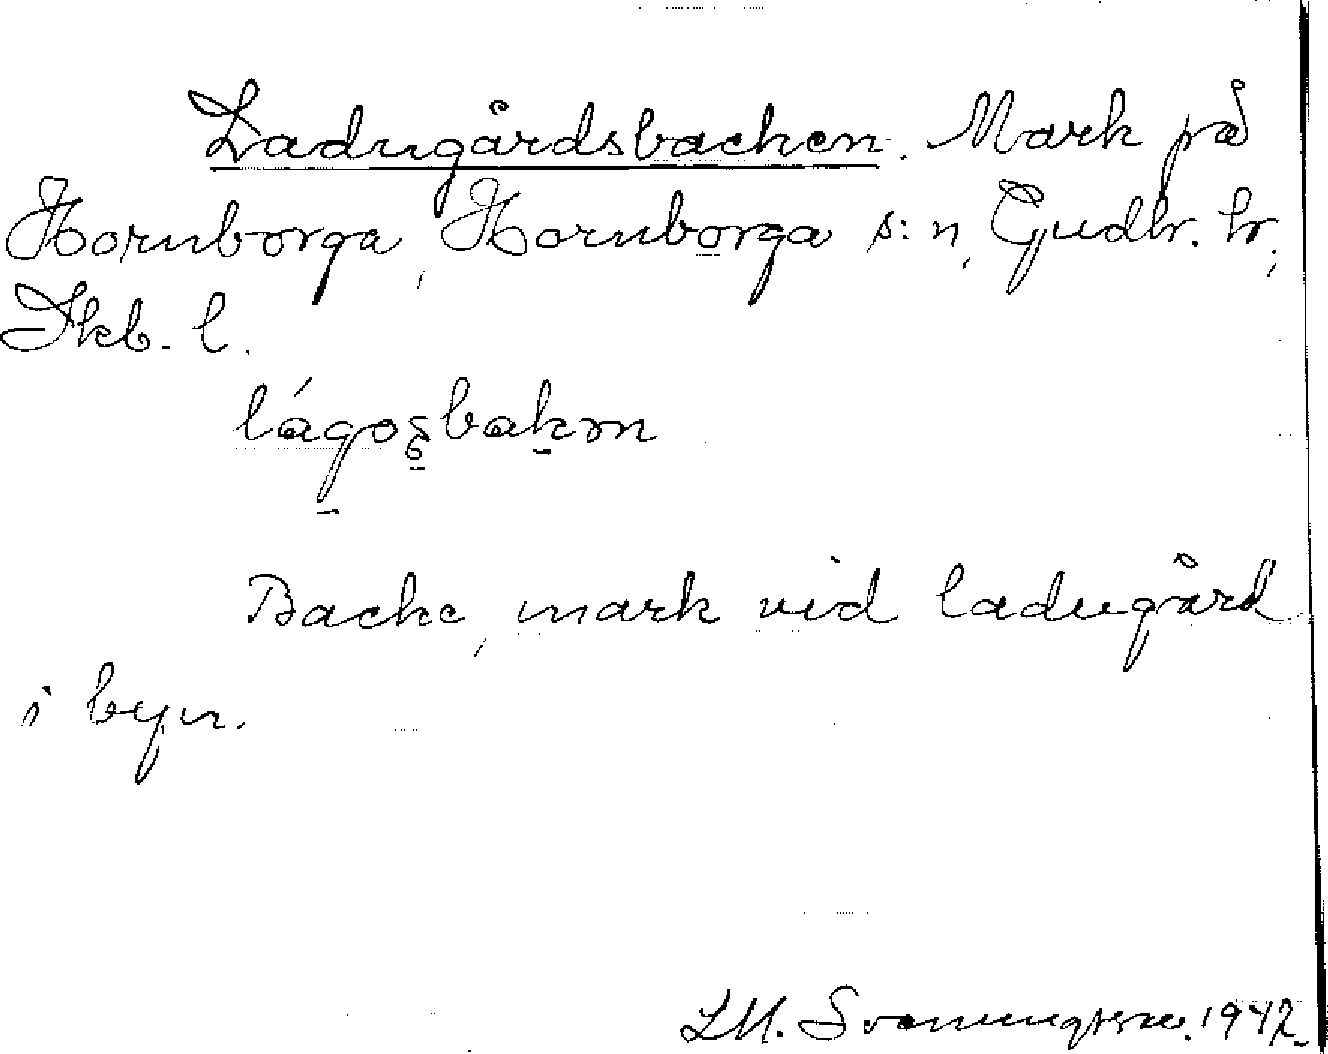 Ladugårdsbacken. Mark på
Hornborga, Hornborga s:n, Gudh. hr,
Skb. l.
lágosbakən
Backe, mark vid ladugård
i byn.
LM. Svenungsson. 1942.